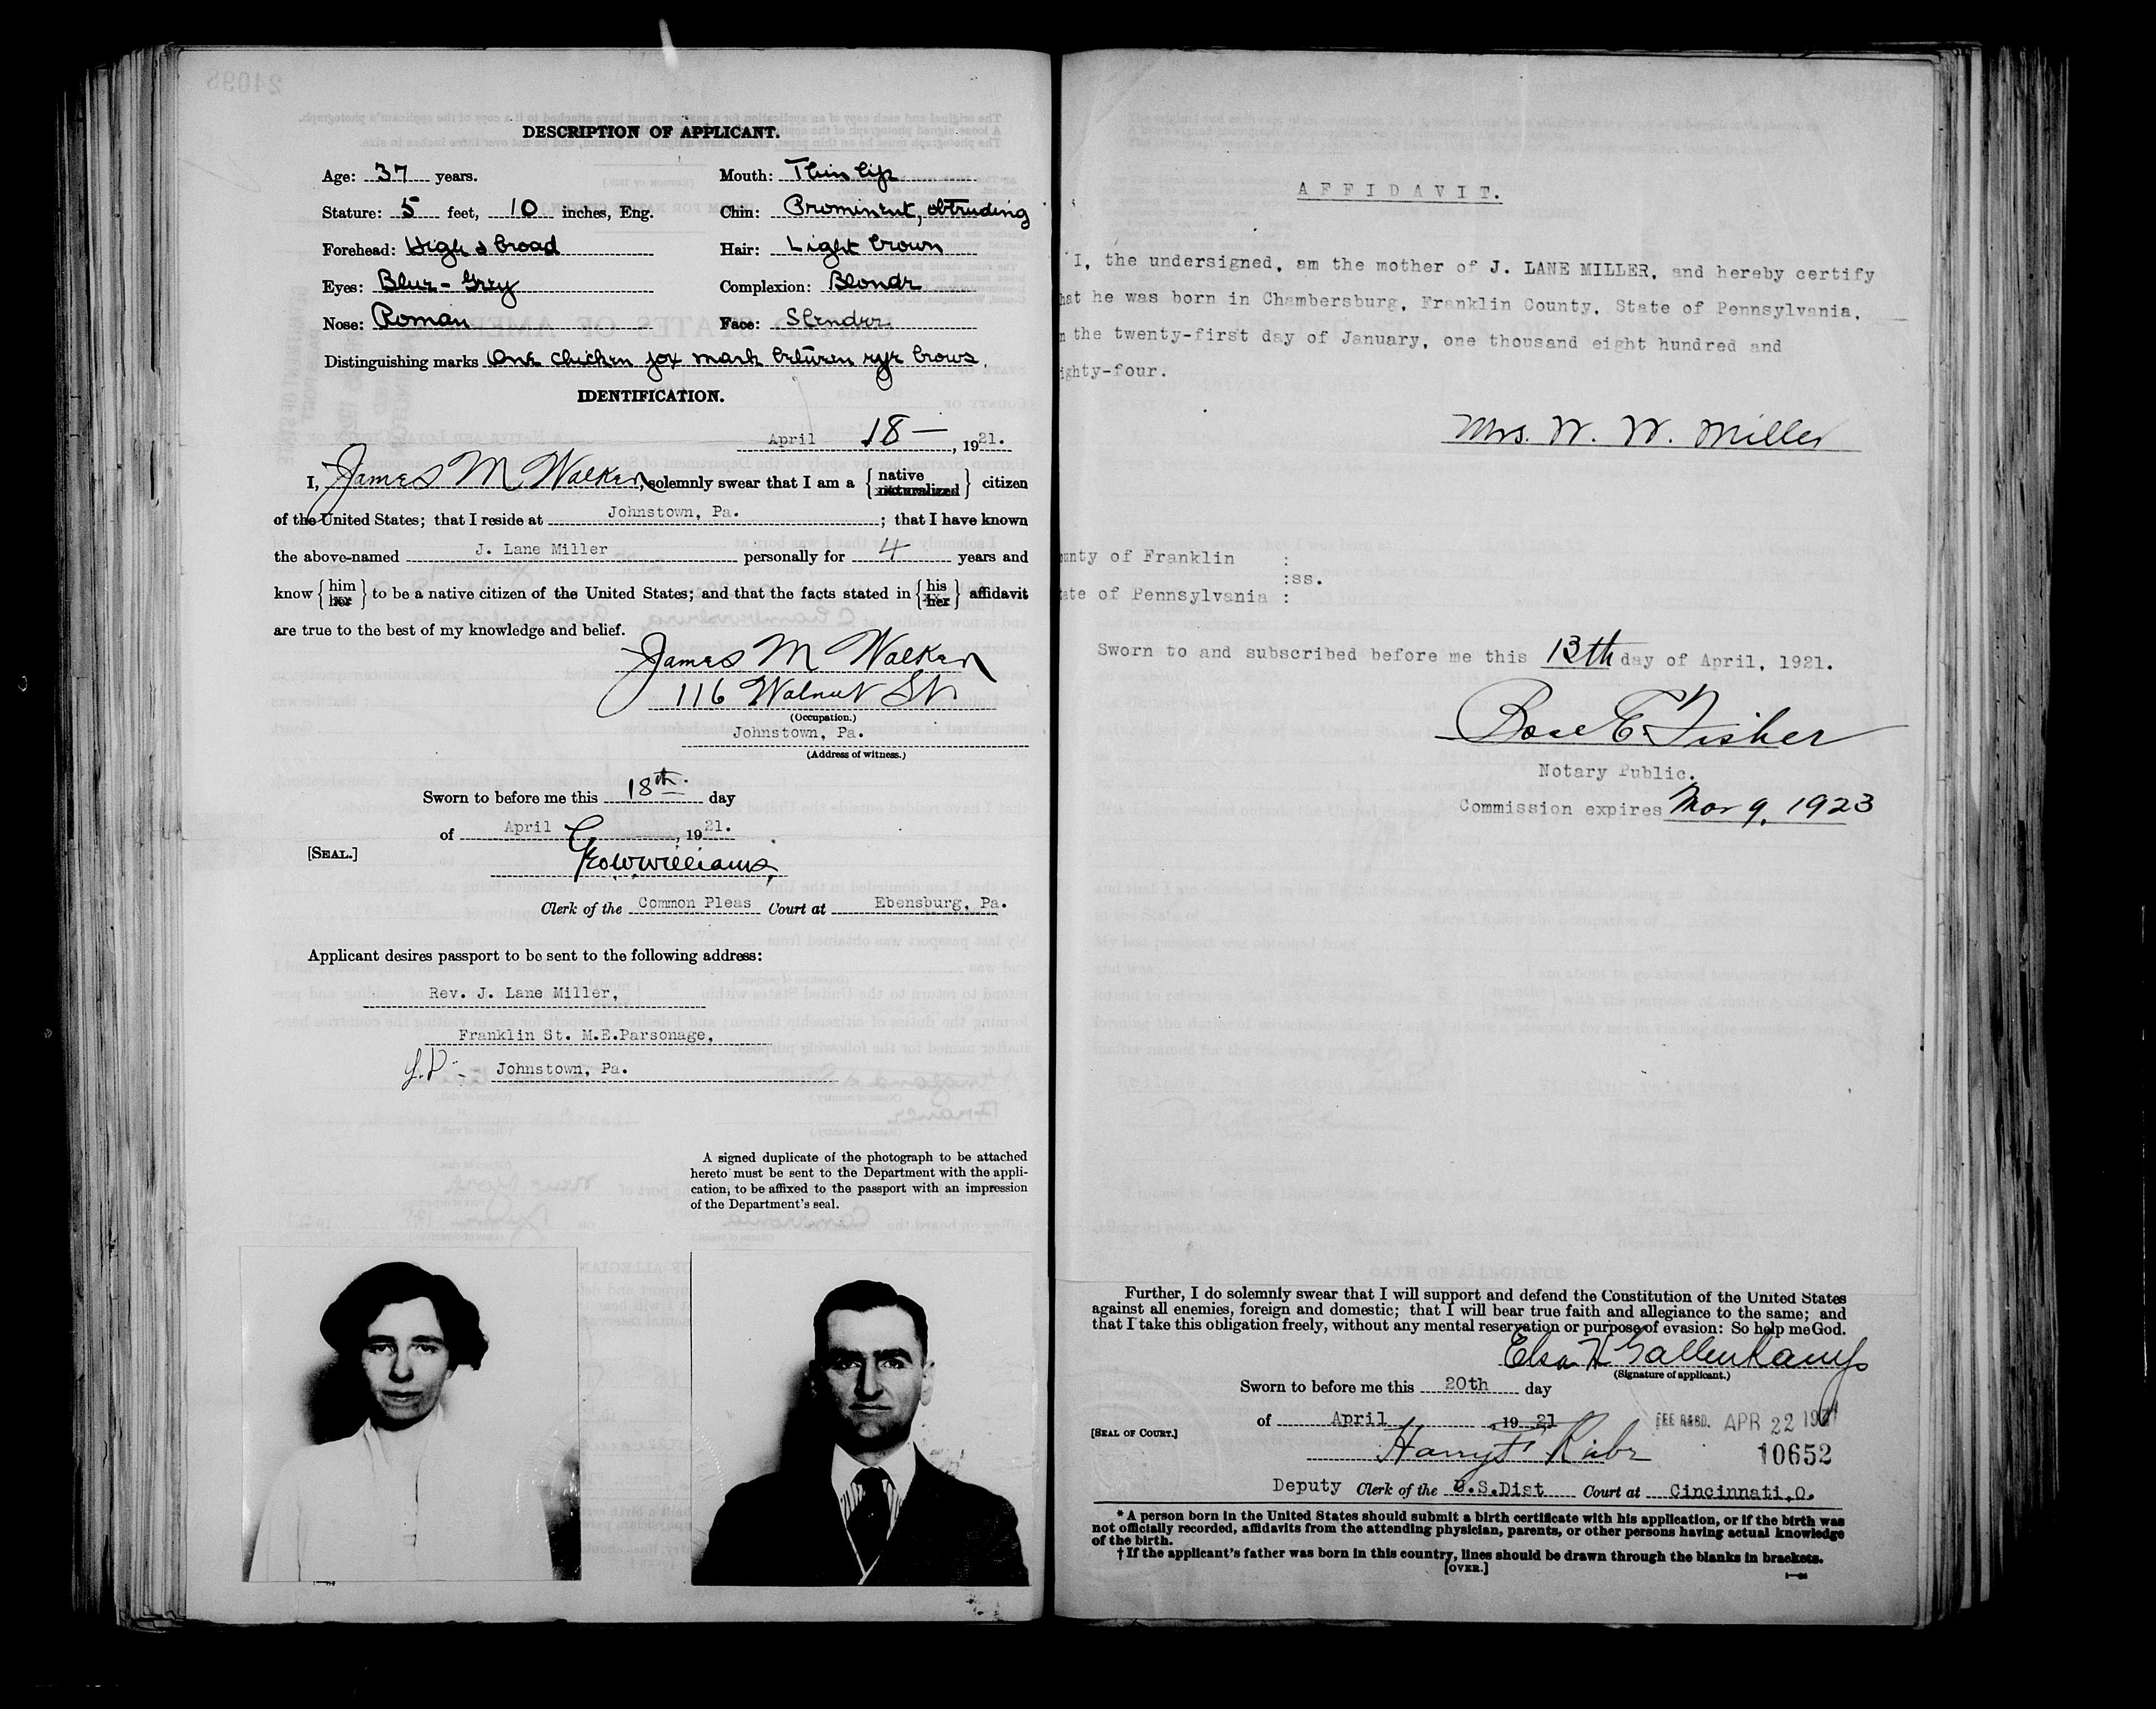 DESCRIPTION OF APPLICANT.
Age: 37 years.
Mouth: Thin lips
Stature: 5 feet, 10 inches, Eng.
Chin: Prominent, obtruding
Forehead: High & broad
Hair: Light brown
Eyes: Blue-Grey
Complexion: Blonde
Nose: Roman
Face: Slender
Distinguishing marks One chicken pox mark between eye brows.
IDENTIFICATION.
April 18 —, 1921.
I, James M Walker, solemnly swear that I am a {native naturalized} citizen
of the United States; that I reside at Johnstown, Pa.; that I have known
the above-named J. Lane Miller personally for 4 years and
know {him her} to be a native citizen of the United States; and that the facts stated in {his her} affidavit
are true to the best of my knowledge and belief.
James M Walker
116 Walnut St
(Occupation.)
Johnstown, Pa.
(Address of witness.)
Sworn to before me this 18th. day
of April, 1921.
[SEAL.]
Geo W Williams,
Clerk of the Common Pleas Court at Ebensburg, Pa.
Applicant desires passport to be sent to the following address:
Rev. J. Lane Miller,
Franklin St. M.E.Parsonage,
Johnstown, Pa.
A signed duplicate of the photograph to be attached
hereto must be sent to the Department with the appli-
cation, to be affixed to the passport with an impression
of the Department's seal.
AFFIDAVIT.
I, the undersigned, am the mother of J. LANE MILLER, and hereby certify
hat he was born in Chambersburg, Franklin County, State of Pennsylvania,
n the twenty-first day of January, one thousand eight hundred and
ighty-four.
Mrs. W. W. Miller
ounty of Franklin :
:ss.
ate of Pennsylvania :
Sworn to and subscribed before me this 13th day of April, 1921.
Rose E. Fisher
Notary Public.
Commission expires Mar 9, 1923
Further, I do solemnly swear that I will support and defend the Constitution of the United States
against all enemies, foreign and domestic; that I will bear true faith and allegiance to the same; and
that I take this obligation freely, without any mental reservation or purpose of evasion: So help me God.
Elsa H Gallenkamp
(Signature of applicant.)
Sworn to before me this 20th day
of April, 19 21
FEE R&BD. APR 22 1921
[SEAL OF COURT.]
Harry F Rabe
10652
Deputy Clerk of the U.S.Dist Court at Cincinnati,O.
* A person born in the United States should submit a birth certificate with his application, or if the birth was
not officially recorded, affidavits from the attending physician, parents, or other persons having actual knowledge
of the birth.
† If the applicant's father was born in this country, lines should be drawn through the blanks in brackets.
[OVER.]